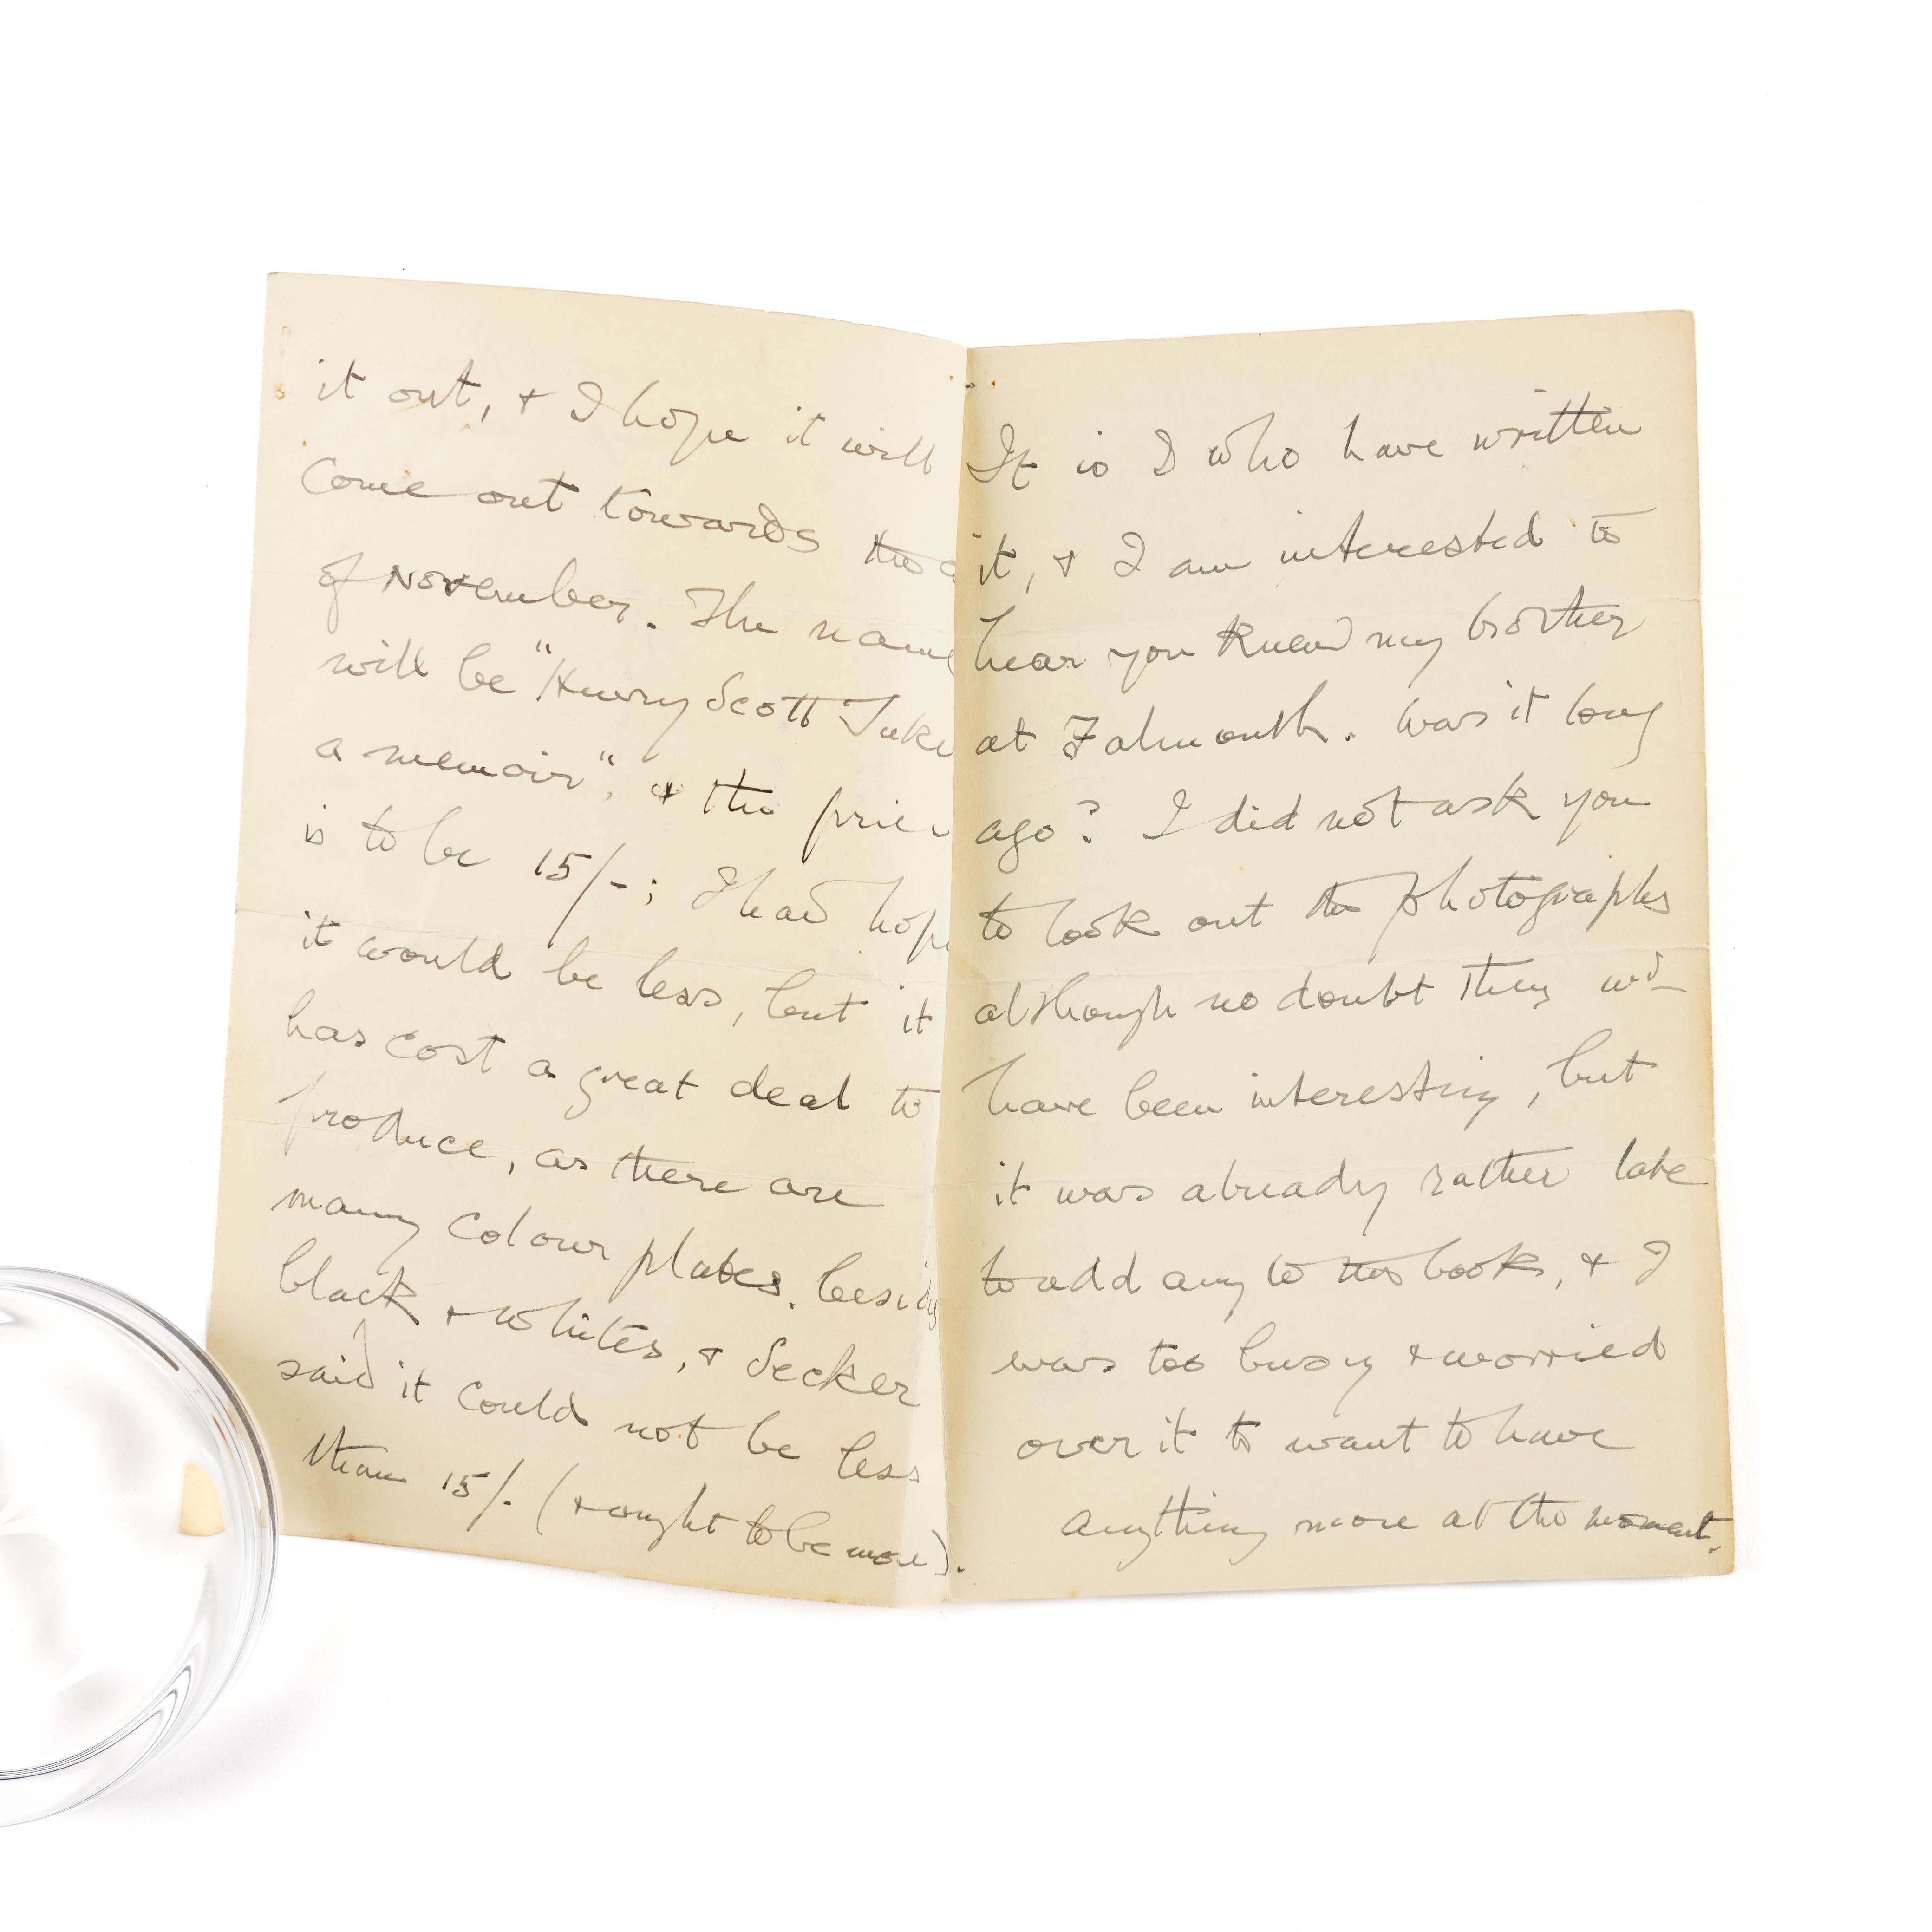 it out, & I hope it will
come out towards the
of November. The name
will be "Henry Scott Tuke
a memoir", & the price
is to be 15/-; I had hope
it would be less, but it
has cost a great deal to
produce, as there are
many colour plates, besides
black & whites, & Secker
said it could not be less
than 15/- (& ought to be more).
It is I who have written
it, & I am interested to
hear you knew my brother
at Falmouth. Was it long
ago? I did not ask you
to look out the photographs
although no doubt they wd
have been interesting, but
it was already rather late
to add any to the book, & I
was too busy & worried
over it to want to have
anything more at the moment.